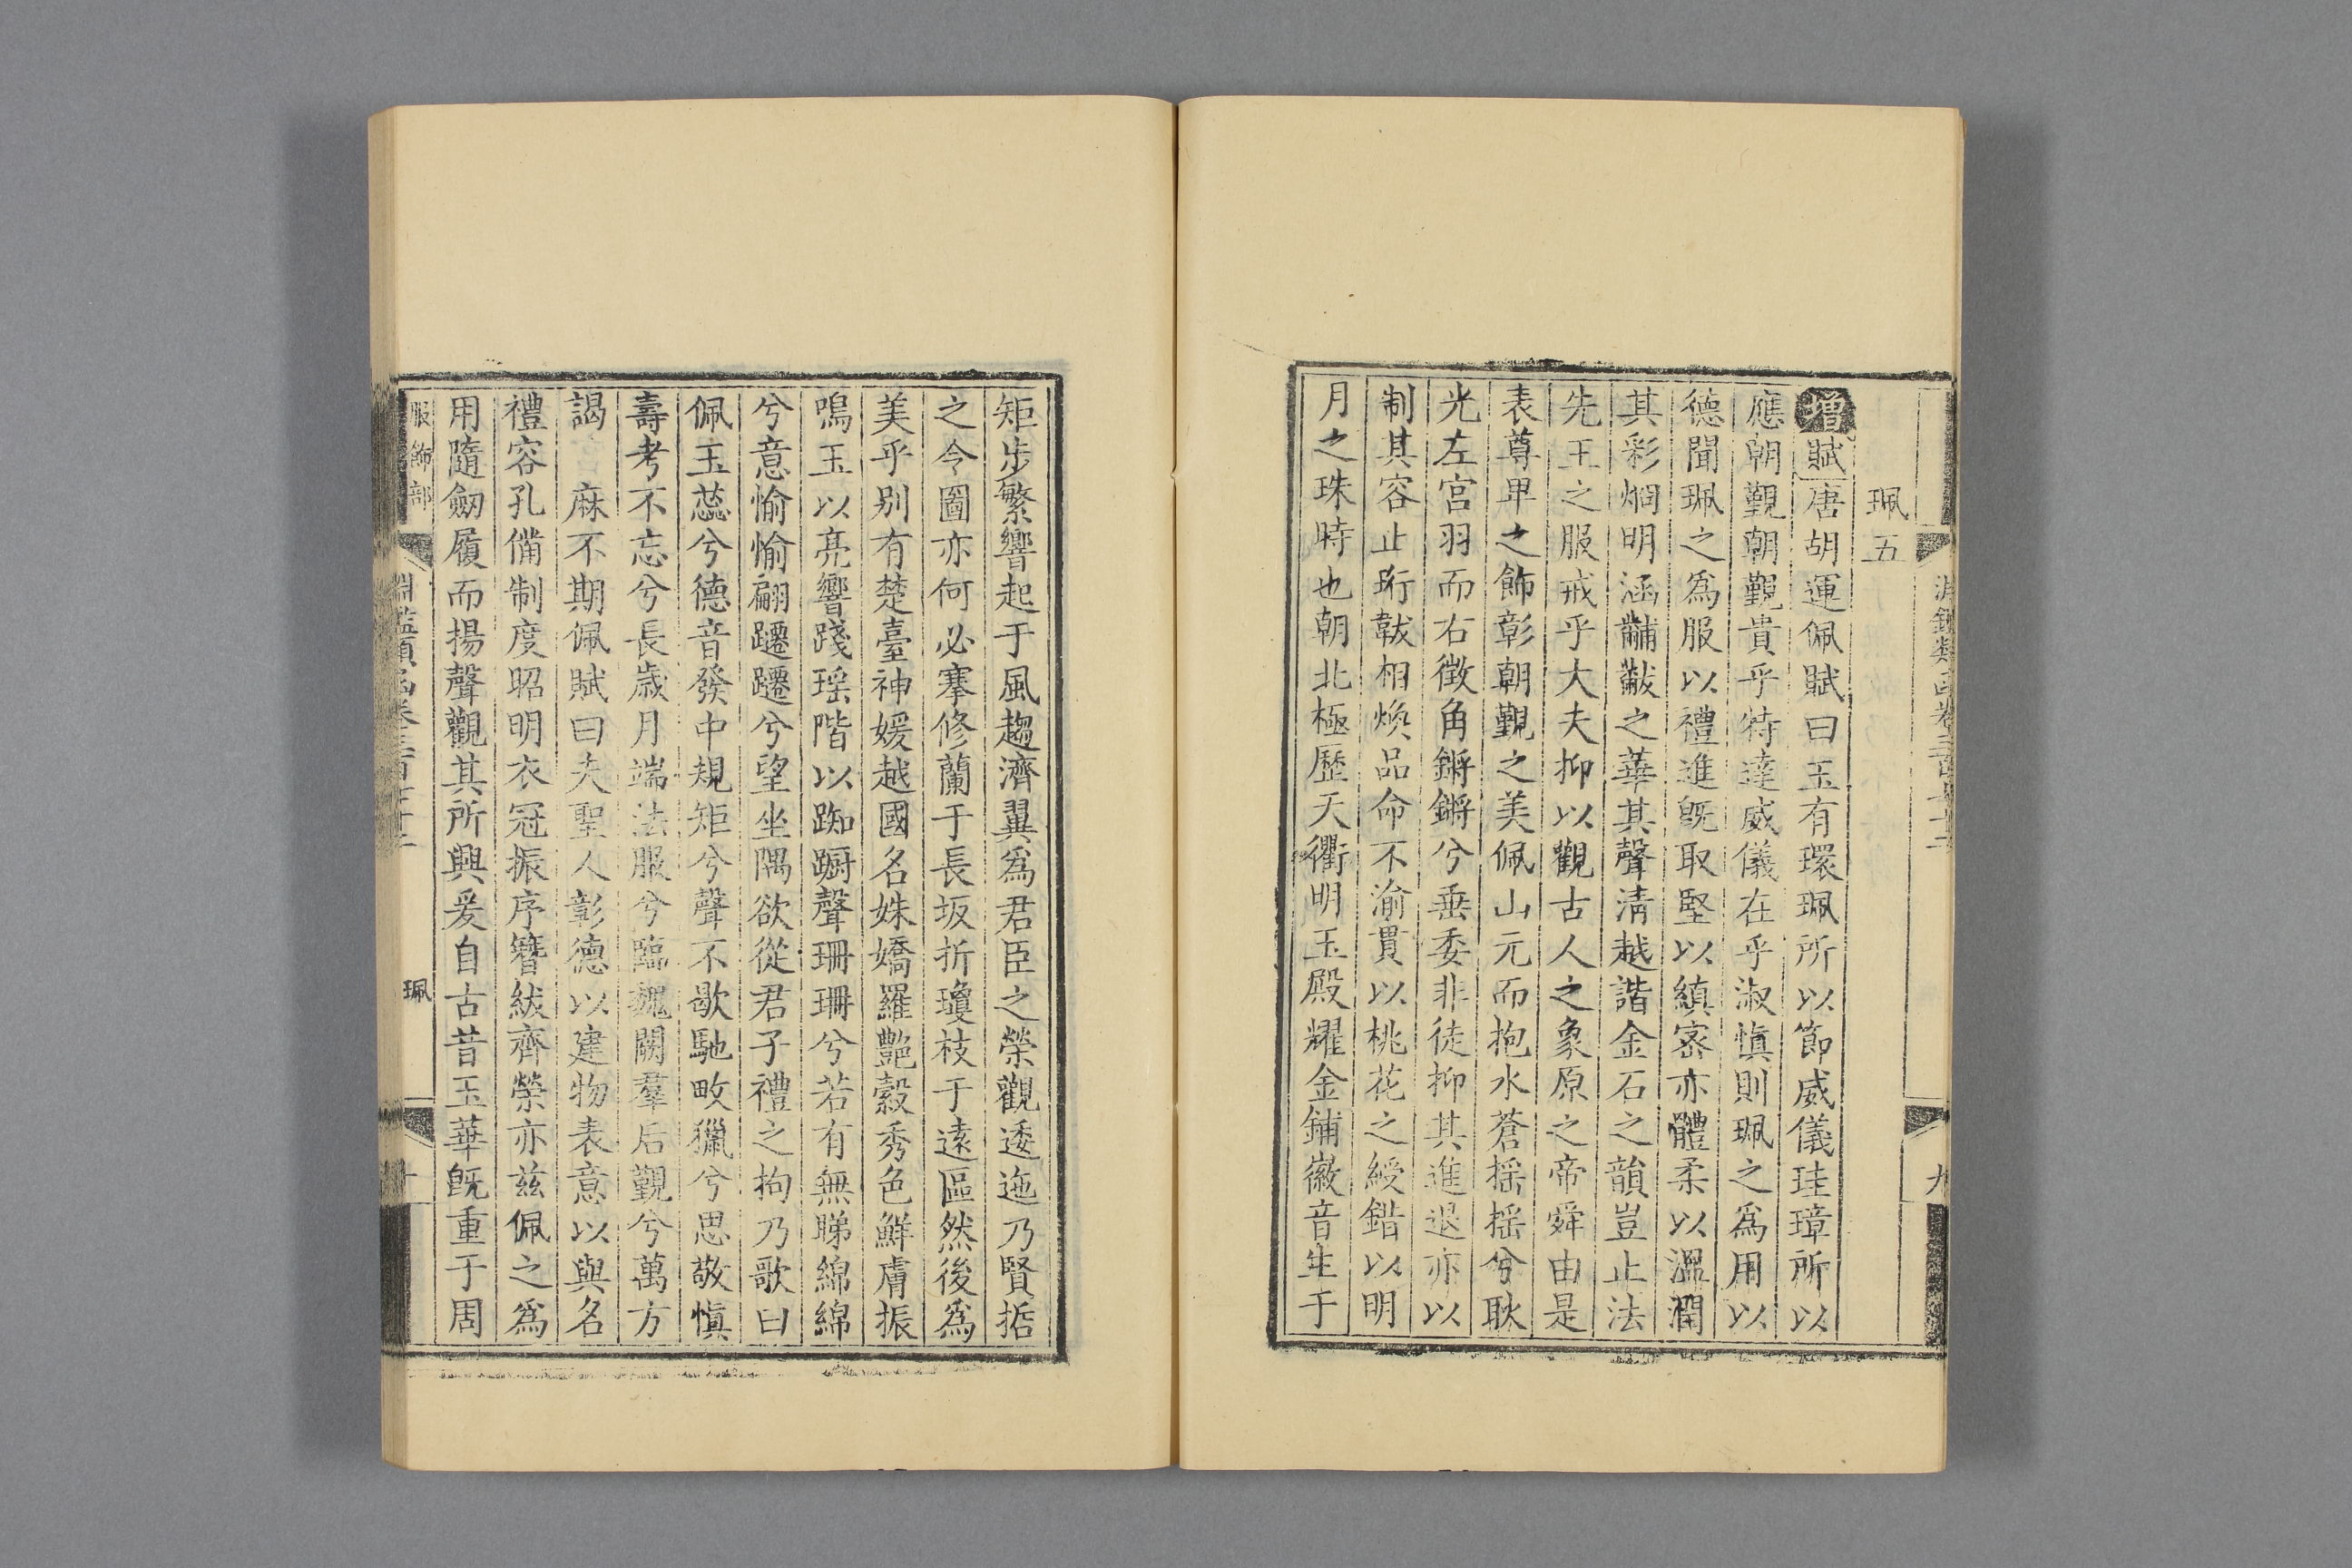 珮五
增賦唐胡運佩賦曰玉有環珮所以節威儀珪璋所以
應朝覲朝覲貴乎待達威儀在乎淑慎則珮之為用以
德聞珮之為服以禮進既取堅以縝密亦體柔以溫潤
其彩炯明涵黼黻之華其聲清越諧金石之韻豈止法
先王之服戒乎大夫抑以觀古人之象原之帝舜由是
表尊卑之飾彰朝覲之美佩山元而抱水蒼搖搖兮耿
光左宮羽而右徵角鏘鏘兮垂委非徒抑其進退亦以
制其容止珩韍相煥品命不渝貫以桃花之綬錯以明
月之珠時也朝北極歷天衢明玉殿耀金鋪徽音生于
九
矩步繁響起于風趨濟翼為君臣之榮觀逶迤乃賢哲
之令圖亦何必搴修蘭于長坂折瓊枝于遠區然後為
美乎別有楚臺神媛越國名姝嬌羅艷縠秀色鮮膚振
鳴玉以亮響踐瑤階以踟躕聲珊珊兮若有無睇綿綿
兮意愉愉翩躚躚兮望坐隅欲從君子禮之拘乃歌曰
佩玉蕊兮德音發中規矩兮聲不歇馳畋獵兮思敬慎
壽考不忘兮長歲月端法服兮臨魏闕羣后覲兮萬方
謁 麻不期佩賦曰夫聖人彰德以建物表意以與名
禮容孔備制度昭明衣冠振序簪紱齊榮亦茲佩之為
用隨劒履而揚聲觀其所興爰自古昔玉華既重于周
服飾部
珮
十